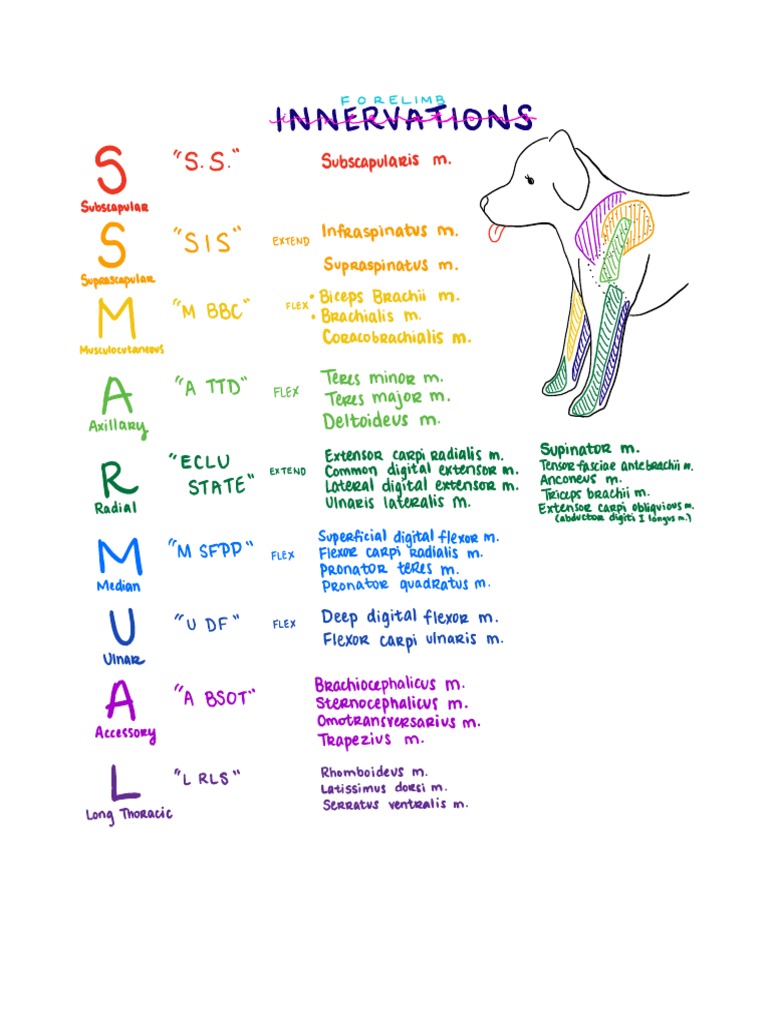 FORELIMB
INNERVATIONS
S
Subscapular
"S.S."
Subscapularis m.
S
Suprascapular
"SIS"
EXTEND
Infraspinatus m.
Supraspinatus m.
M
Musculocutaneous
"M BBC"
FLEX
• Biceps Brachii m.
• Brachialis m.
Coracobrachialis m.
A
Axillary
"A TTD"
FLEX
Teres minor m.
Teres major m.
Deltoideus m.
R
Radial
"ECLU
STATE"
EXTEND
Extensor carpi radialis m.
Common digital extensor m.
Lateral digital extensor m.
Ulnaris lateralis m.
Supinator m.
Tensor fasciae antebrachii m.
Anconeus m.
Triceps brachii m.
Extensor carpi obliquious m.
(abductor digiti I longus m.)
M
Median
"M SFPP"
FLEX
Superficial digital flexor m.
Flexor carpi radialis m.
Pronator teres m.
Pronator quadratus m.
U
Ulnar
"U DF"
FLEX
Deep digital flexor m.
Flexor carpi ulnaris m.
A
Accessory
"A BSOT"
Brachiocephalicus m.
Sternocephalicus m.
Omotransversarius m.
Trapezius m.
L
Long Thoracic
"L RLS"
Rhomboideus m.
Latissimus dorsi m.
Serratus ventralis m.